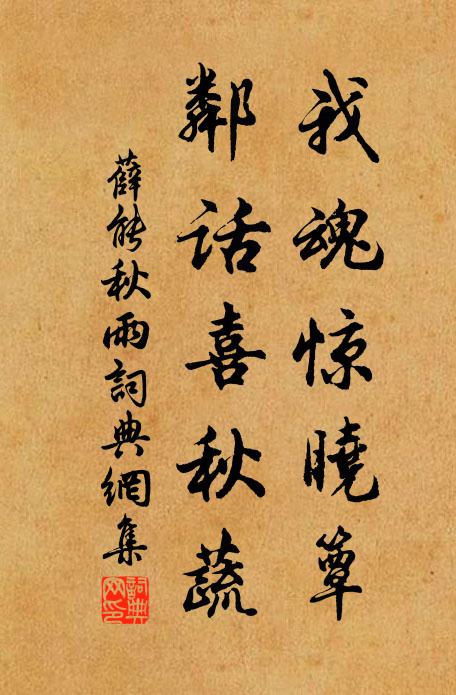 我魂惊曉簟
鄰话喜秋蔬
薛能秋雨詞典網集
詞典网印